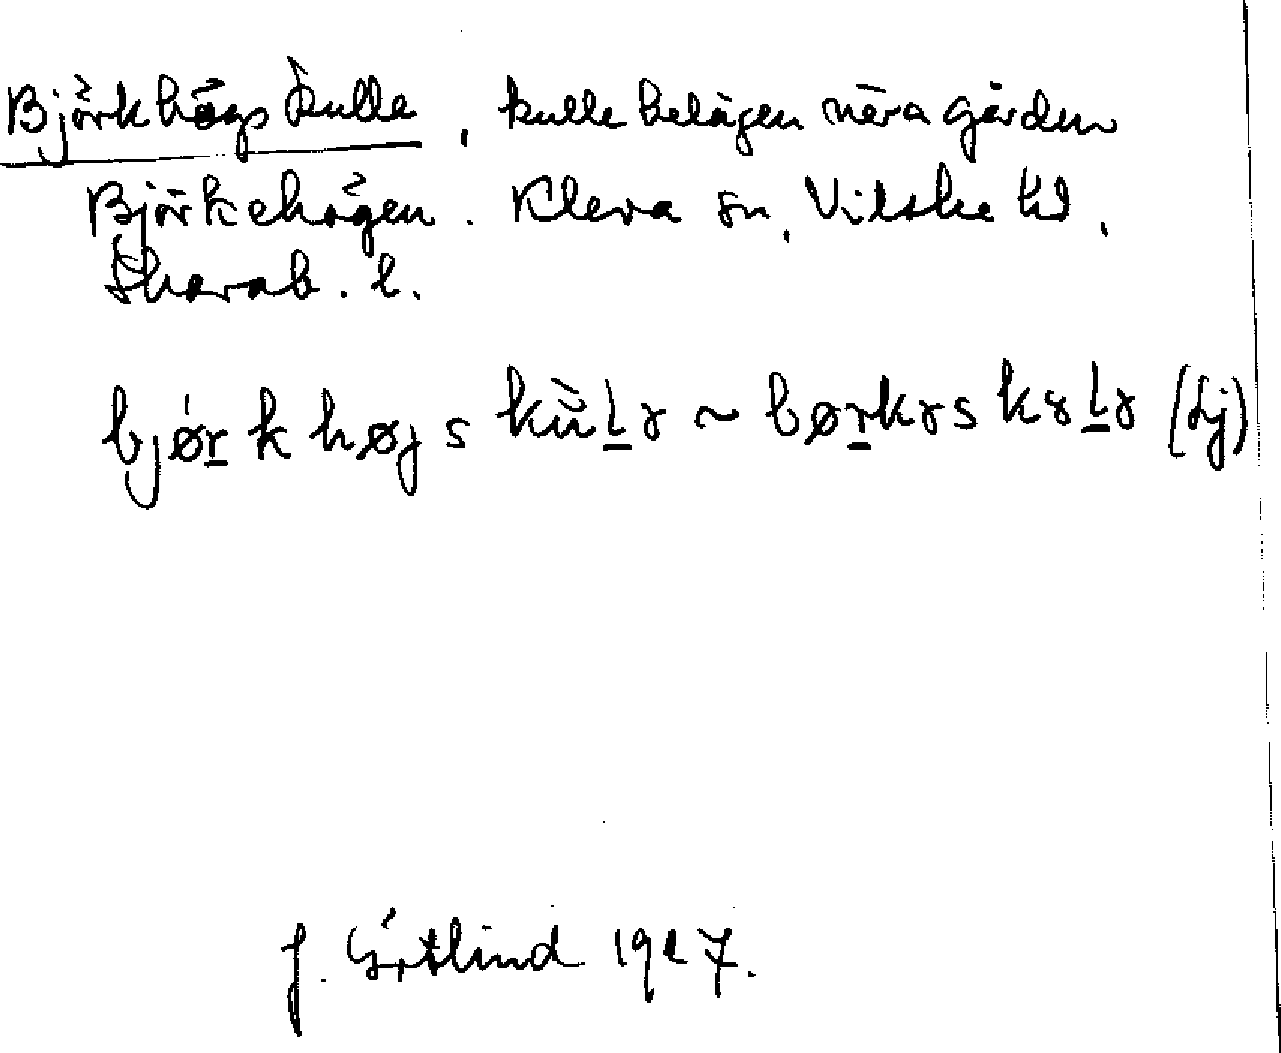 Björkhögs kulle, kulle belägen nära gården
Björkehögen. Kleva sn, Vilske hd,
Skarab. l.
bjørk høgs kùLɤ ~ børkɤs kɤLɤ (Lj)
J. Götlind 1927.